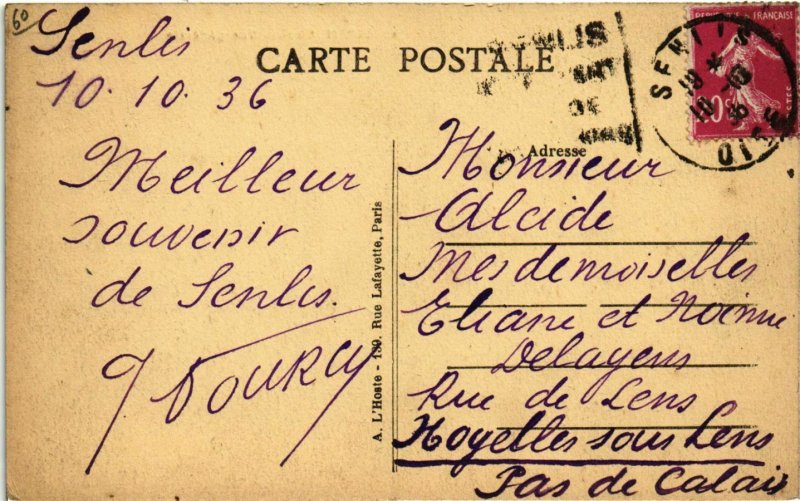 60
CARTE POSTALE
Senlis
10.10.36
Meilleur
souvenir
de Senlis.
A. L'Hoste - 139, Rue Lafayette, Paris
Adresse
Monsieur
Alcide
Mesdemoiselles
Eliane et
Delayens
Rue de Lens
Noyelles sous Lens
Pas de Calais
POSTALE FRANÇAISE
SENLIS
OISE